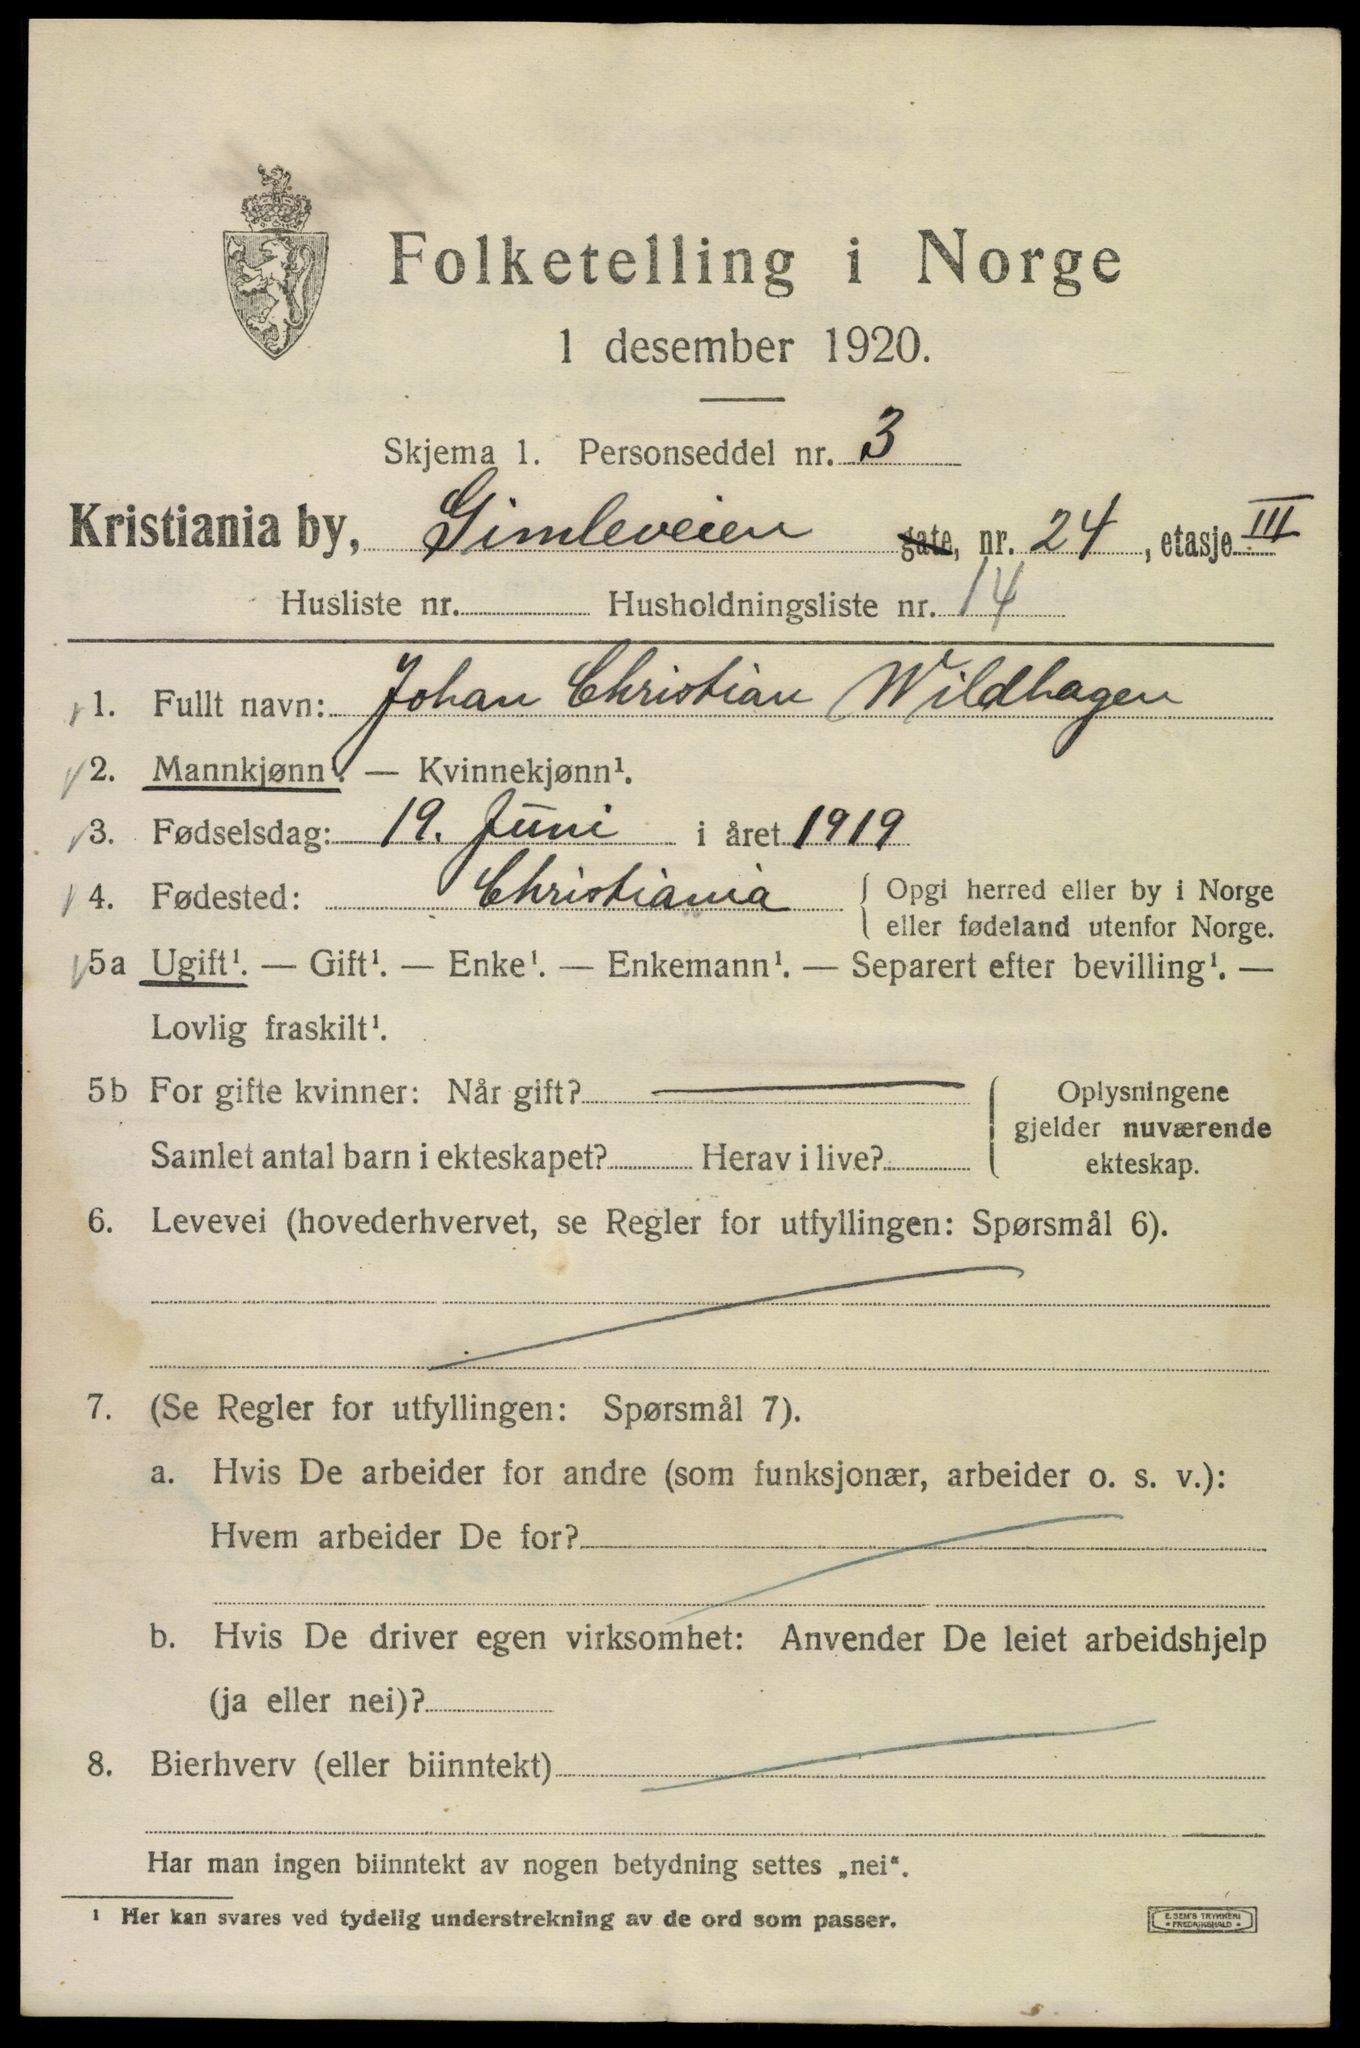 Folketelling i Norge
1 desember 1920.
Skjema 1. Personseddel nr. 3
Kristiania by, Gimleveien gate, nr. 24, etasje III
Husliste nr. Husholdningsliste nr. 14
1. Fullt navn: Johan Christian Wildhagen
2. Mannkjønn¹. — Kvinnekjønn¹.
3. Fødselsdag: 19. Juni i året 1919
4. Fødested: Christiania { Opgi herred eller by i Norge
eller fødeland utenfor Norge.
5a Ugift¹. — Gift¹. — Enke¹. — Enkemann¹. — Separert efter bevilling¹. —
Lovlig fraskilt¹.
5b For gifte kvinner: Når gift? Oplysningene
gjelder nuværende
Samlet antal barn i ekteskapet? Herav i live? ekteskap.
6. Levevei (hovederhvervet, se Regler for utfyllingen: Spørsmål 6).
7. (Se Regler for utfyllingen: Spørsmål 7).
a. Hvis De arbeider for andre (som funksjonær, arbeider o. s. v.):
Hvem arbeider De for?
b. Hvis De driver egen virksomhet: Anvender De leiet arbeidshjelp
(ja eller nei)?
8. Bierhverv (eller biinntekt)
Har man ingen biinntekt av nogen betydning settes „nei".
¹ Her kan svares ved tydelig understrekning av de ord som passer.
E. SEM'S TRYKKERI
* FREDRIKSHALD *